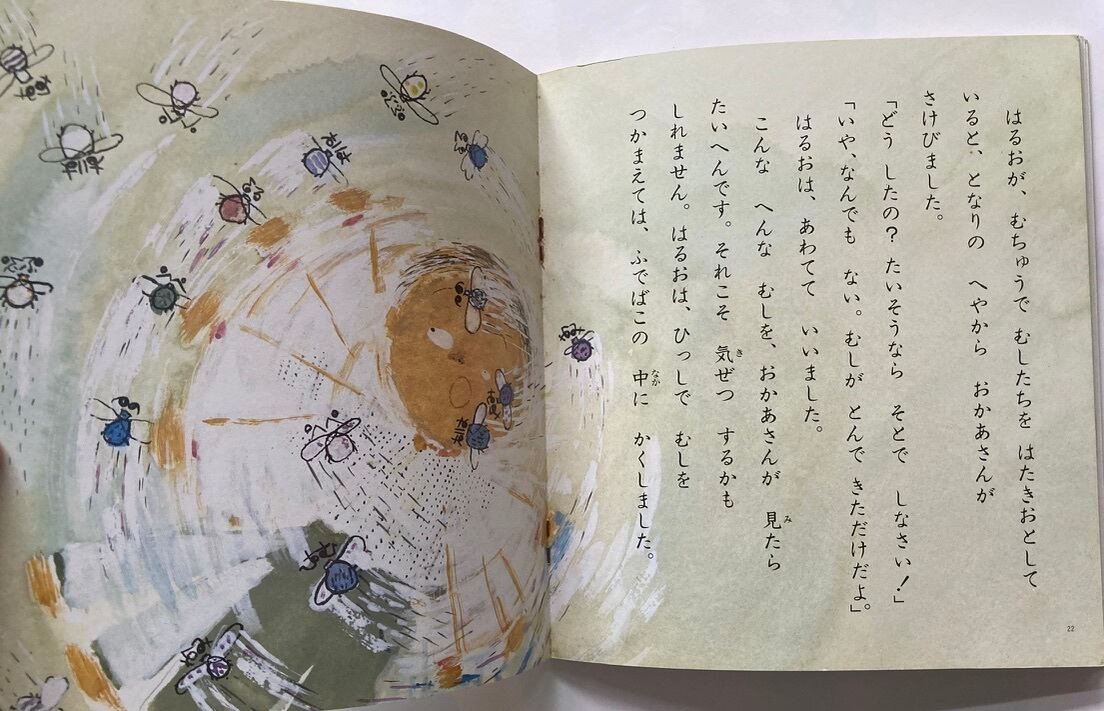 はるおが、むちゅうで むしたちを はたきおとして
いると、となりの へやから おかあさんが
さけびました。
「どう したの? たいそうなら そとで しなさい!」
「いや、なんでも ない。むしが とんで きただけだよ」。
はるおは、あわてて いいました。
こんな へんな むしを、おかあさんが 見(み)たら
たいへんです。それこそ 気(き)ぜつ するかも
しれません。はるおは、ひっしで むしを
つかまえては、ふでばこの 中(なか)に かくしました。
22